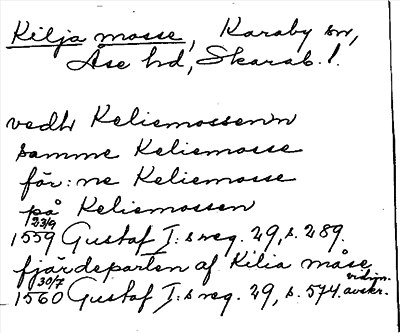 Kilja mosse, Karaby sn,
Åse hd, Skarab. l.
vedh Keliemossenn
samme Keliemosse
för:ne Keliemosse
på Keliemossen
23/9
1559 Gustaf I:s reg. 29, s. 289.
fjärdeparten af Kilia måse
30/7 vidim.
1560 Gustaf I:s reg. 29, s. 574. avskr.